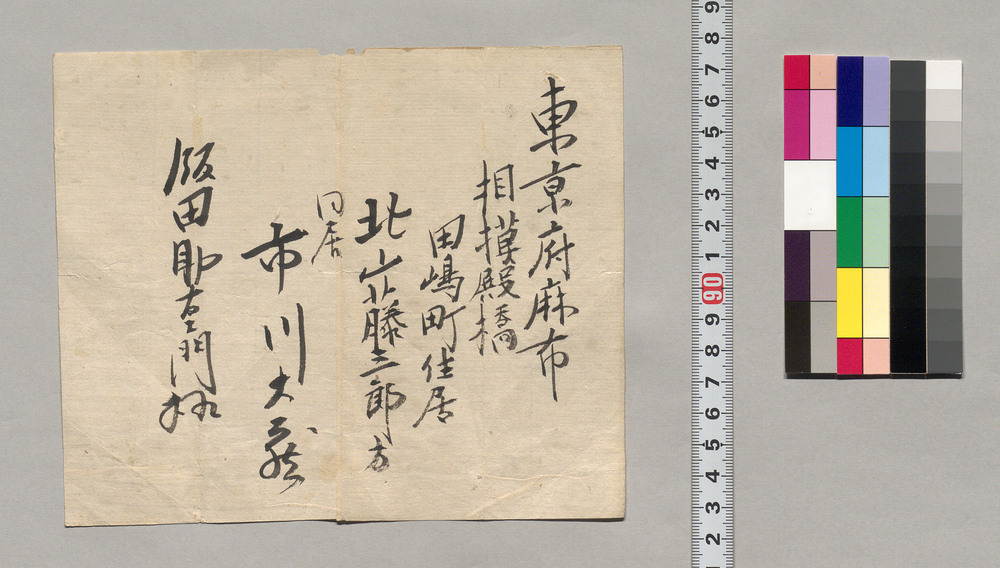 東京府麻布
相摸殿橋
田嶋町住居
北山藤三郎方
同居
市川大蔵
飯田助左衛門様
9
8
7
6
5
4
3
2
1
90
9
8
7
6
5
4
3
2